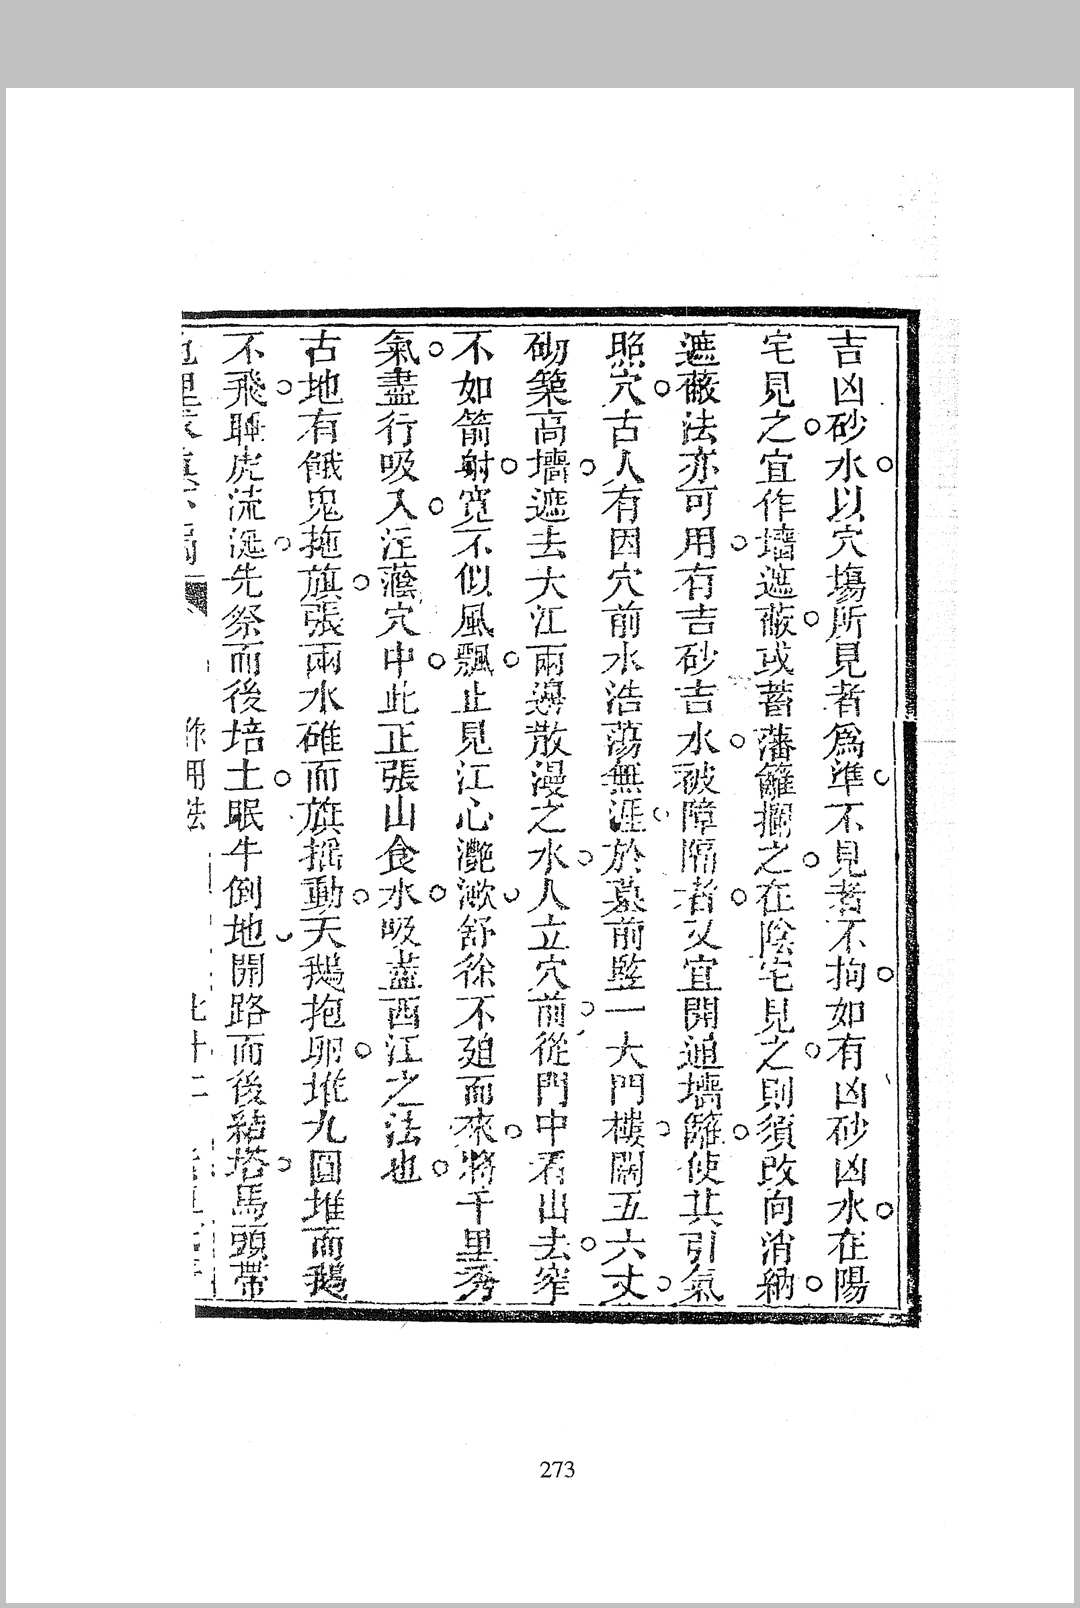 吉凶砂水以穴塲所見者爲準不見者不拘如有凶砂凶水在陽
宅見之宜作墻遮蔽或蓄藩籬攔之在陰宅見之則須改向消納
遮蔽法亦可用有吉砂吉水被障隔者又宜開通墻籬使其引氣
照穴古人有因穴前水浩蕩無涯於墓前竪一大門樓闊五六丈
砌築高墻遮去大江兩邊散漫之水人立穴前從門中看出去窄
不如箭射寬不似風飄止見江心灔漱舒徐不廹而來將千里秀
氣盡行吸入注蔭穴中此正張山食水吸盡西江之法也
古地有餓鬼拖旗張兩水碓而旗搖動天鵝抱卵堆九圓堆而鵝
不飛睡虎流涎先祭而後培土眠牛倒地開路而後結塔馬頭帶
作用法
273